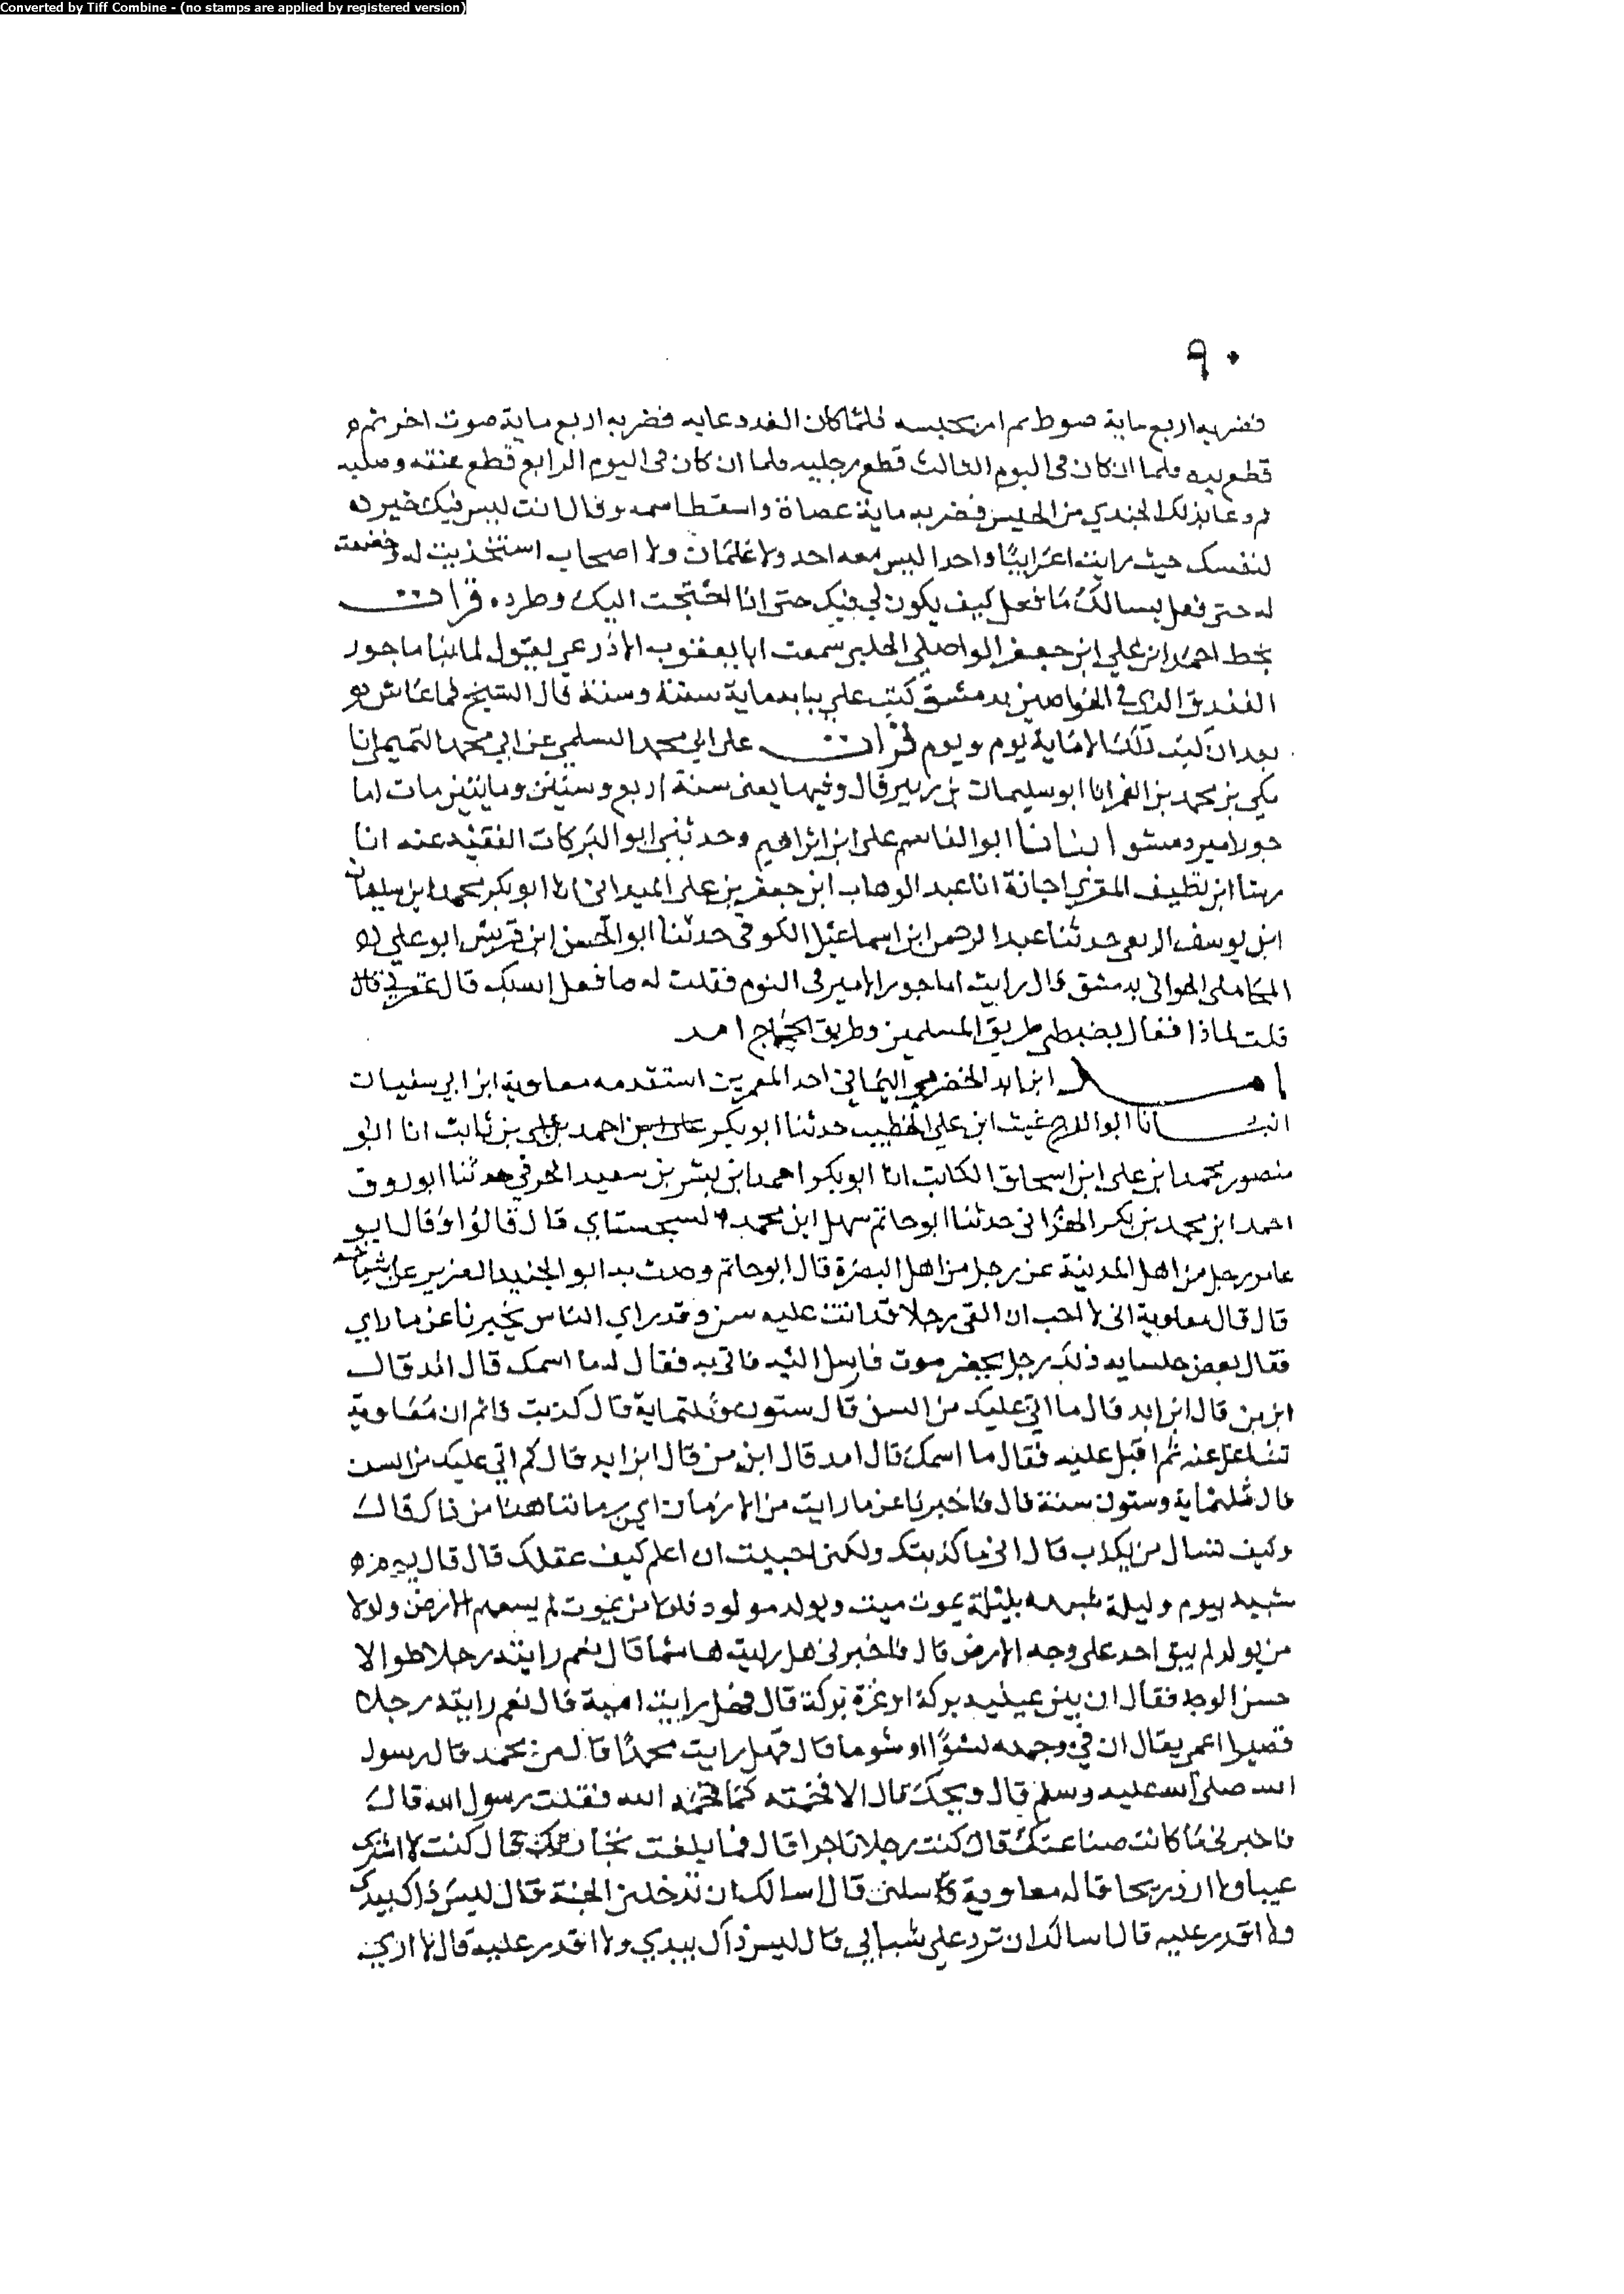 Converted by Tiff Combine - (no stamps are applied by registered version)
٩٠
فضربه اربع ماية صوط ثم امر بحبسه فلما كان الغد دعابه فضربه اربع ماية صوت اخر ثم
قطع يده فلما ان كان في اليوم الثالث قطع رجليه فلما ان كان في اليوم الرابع قطع عنقه وصلبه
ثم دعا بذلك الجندي من الحبس فضربه ماية عصاة واسقط اسمه وقال انت ليس فيك خير
لنفسك حيث رايت اعرابيا واحدا ليس معه احد ولا غلمان ولا اصحاب استخذيت له وخضعت
له حتى فعل بسبالك ما فعل كيف يكون لي فيك حتى انا احتجت اليك وطرده قرات
بخط احمد ابن علي ابن جعفر الواصلي الحلبي سمعت ابا يعقوب الاذرعي يقول لما بنا ماجور
الفندق الذي في الخواصين بدمشق كتب على بابه ماية سنة وسنة قال الشيخ فما عاش
بعد ان كتب ذلك الا ماية يوم ويوم قرات على ابي محمد السلمي عن ابي محمد التميمي انا
مكي بن محمد بن الغمر انا ابو سليمان بن زبير قال وفيها يعني سنة اربع وستين ومايتين مات اما
جور امير دمشق انبانا ابو القاسم علي ابن ابراهيم وحدثني ابو البركات الفقيه عنه انا
رشا ابن نظيف المقري اجازة انا عبد الوهاب ابن جعفر بن علي الميداني انا ابو بكر محمد ابن سليمان
ابن يوسف الربعي حدثنا عبد الرحمن ابن اسماعيل الكوفي حدثنا ابو الحسن ابن قريش ابو علي
الهواني بدمشق قال رايت اماجور الامير في النوم فقلت له ما فعل الله بك قال غفر لي قال
قلت لماذا فقال بضبطي طريق المسلمين وطريق الحجاج امد
امد ابن ابد الحضرمي اليماني احد المعمرين استقدمه معاوية ابن ابي سفيان
انبانا ابو الفرج غيث ابن علي الخطيب حدثنا ابو بكر احمد بن علي بن ثابت انا ابو
منصور محمد ابن علي ابن اسحاق الكاتب انا ابو بكر احمد ابن بشر بن سعيد الخرقي حدثنا ابو روق
احمد ابن محمد بن بكر الهزاني حدثنا ابو حاتم سهل ابن محمد السجستاني قال قالوا وقال ابو
عامر رجل من اهل المدينة عن رجل من اهل البصرة قال ابو حاتم وحدث به ابو الجنيد العزير عن اشياخه
قال قال معاوية اني لاحب ان القى رجلا قد اتت عليه سن وقد راي الناس يخبرنا عن ما راي
فقال بعض جلسايه ذلك رجل بحضرموت فارسل اليه فاتي به فقال له ما اسمك قال امد قال
ابن من قال ابن ابد قال ما اتي عليك من السن قال ستون وثلثماية قال كذبت قال ثم ان معاوية
تشاغل عنه ثم اقبل عليه فقال ما اسمك قال امد قال ابن من قال ابن ابد قال كم اتي عليك من السن
قال ثلثماية وستون سنة قال فاخبرنا عن ما رايت من الازمان اين زماننا هذا من ذاك قال
وكيف تسال من يكذب قال اني ما كذبتك ولكن احببت ان اعلم كيف عقلك قال قال يوم
شبيه بيوم وليلة شبيهه بليلة يموت ميت ويولد مولود فلولا من يموت لم يسعهم الارض ولولا
من يولد لم يبق احد على وجه الارض قال فاخبرني هل رايت هاشما قال نعم رايته رجلا طوالا
حسن الوجه فقال ان بين عينيه بركة او غرة بركة قال فهل رايت امية قال نعم رايته رجلا
قصيرا اعمي يقال ان في وجهه لشرا او شوما قال فهل رايت محمدا قال من محمد قال رسول
الله صلى الله عليه وسلم قال ويحك قال الا فخمته كما فخمه الله فقلت رسول الله قال
فاخبرني ما كانت صناعتك قال كنت رجلا تاجرا قال فما بلغت تجارتك قال كنت لا اشتري
عيبا ولا ارد ربحا قال معاوية سلني قال اسالك ان تدخلني الجنة قال ليس ذاك بيدي
ولا اقدر عليه قال اسالك ان ترد علي شبابي قال ليس ذاك بيدي ولا اقدر عليه قال لا اري